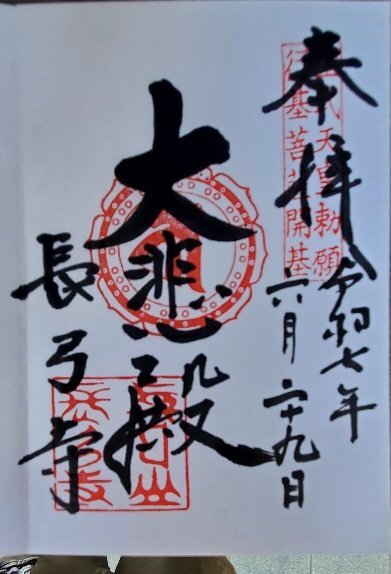 奉拝
令和七年
六月二十九日
天皇勅願
行基菩薩開基
大悲殿
長弓寺